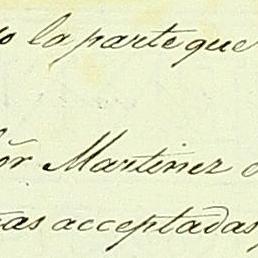 la parte que
Martinez
acceptadas